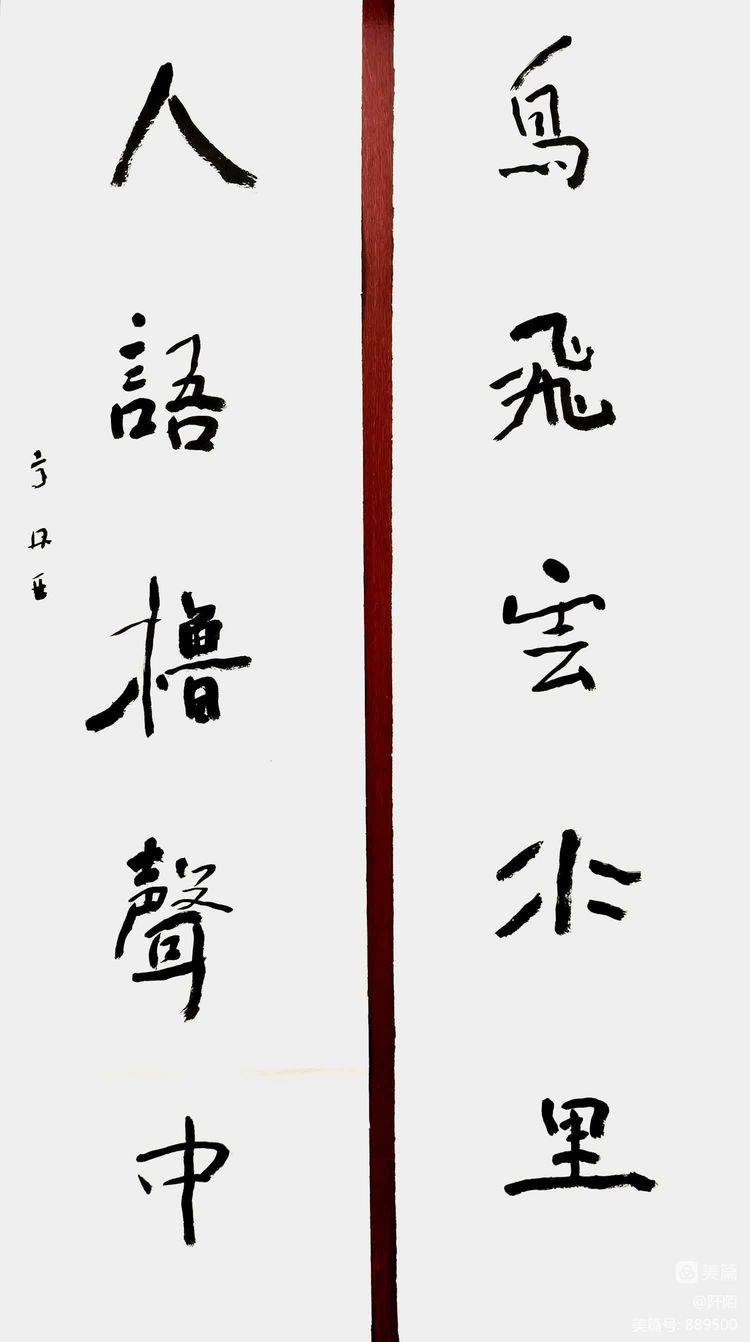 鳥飛雲水里
人語櫓聲中
美篇
@阡陌
美篇号: 889500